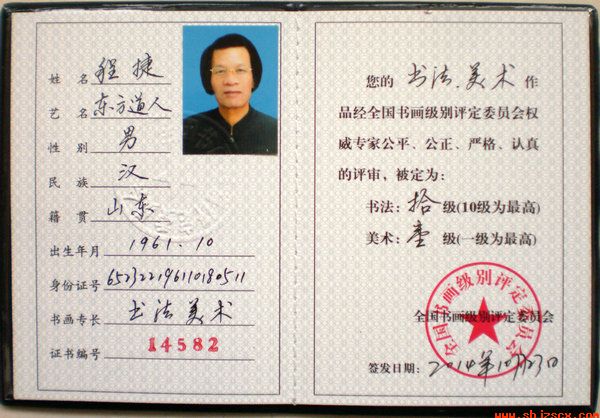 姓名 程捷
艺名 东方道人
性别 男
民族 汉
籍贯 山东
出生年月 1961.10
身份证号 652322196110180511
书画专长 书法美术
证书编号 14582
您的 书法.美术 作
品经全国书画级别评定委员会权
威专家公平、公正、严格、认真
的评审，被定为：
书法：拾 级(10级为最高)
美术：壹 级(一级为最高)
全国书画级别评定委员会
全国书画级别评定委员会
签发日期：2014年10月23日
www.shjzscx.com